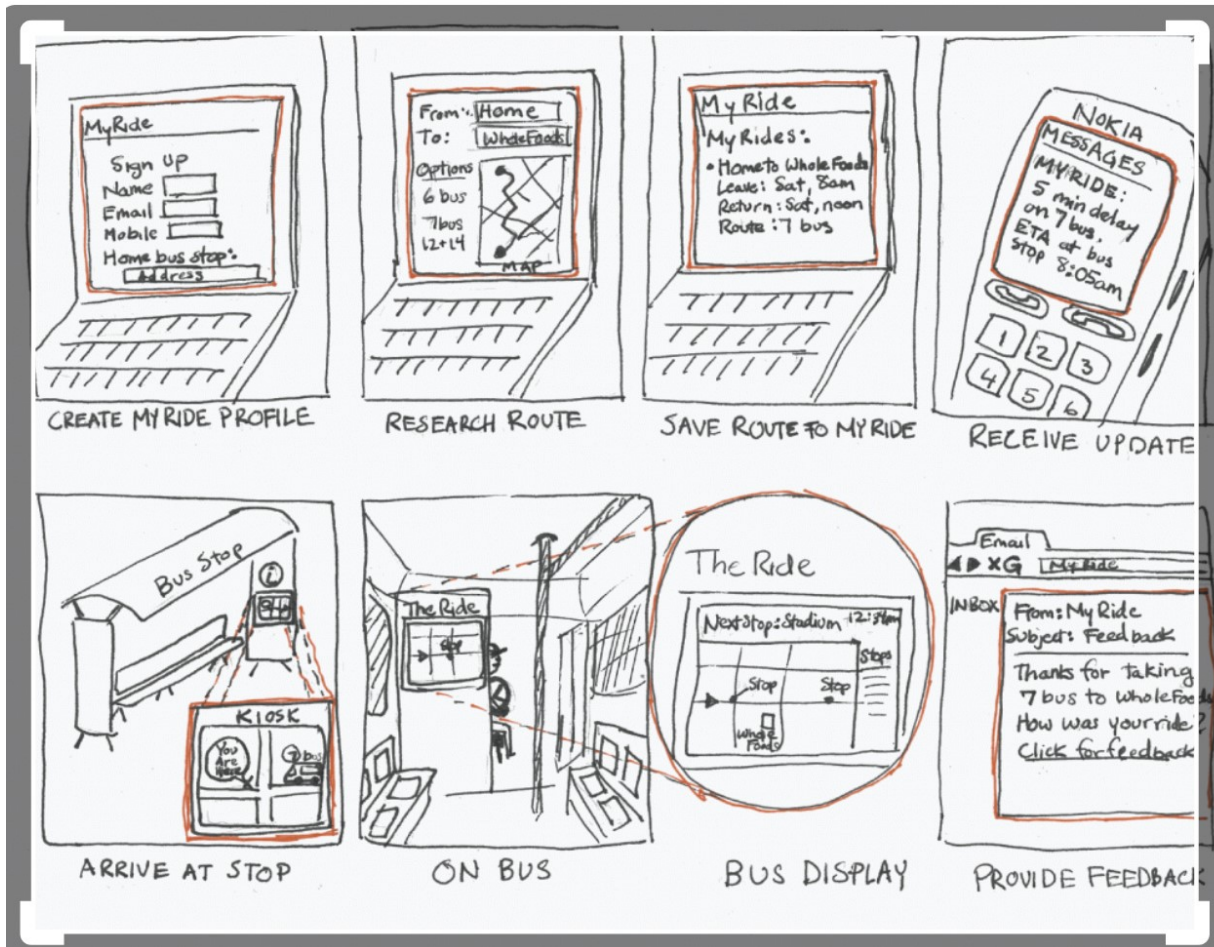 MyRide
Sign UP
Name
Email
Mobile
Home bus stop:
Address
CREATE MY RIDE PROFILE
From: Home
To: WholeFoods
Options
6 bus
7bus
12+14
MAP
RESEARCH ROUTE
My Ride
MyRides:
• Home to Whole Foods
Leave: Sat, 8am
Return: Sat, noon
Route: 7 bus
SAVE ROUTE TO MY RIDE
NOKIA
MESSAGES
MY RIDE:
5 min delay
on 7 bus,
ETA at bus
stop 8:05am
1 2 3
4 5 6
RECEIVE UPDATE
Bus Stop
i
KIOSK
You
Are
Here
7 bus
ARRIVE AT STOP
The Ride
Stop
ON BUS
The Ride
Next Stop: Stadium
Stops
Stop Stop
Whole
Foods
BUS DISPLAY
Email
My Ride
INBOX
From: My Ride
Subject: Feedback
Thanks for taking
7 bus to WholeFoods
How was your ride?
Click for feedback
PROVIDE FEEDBACK